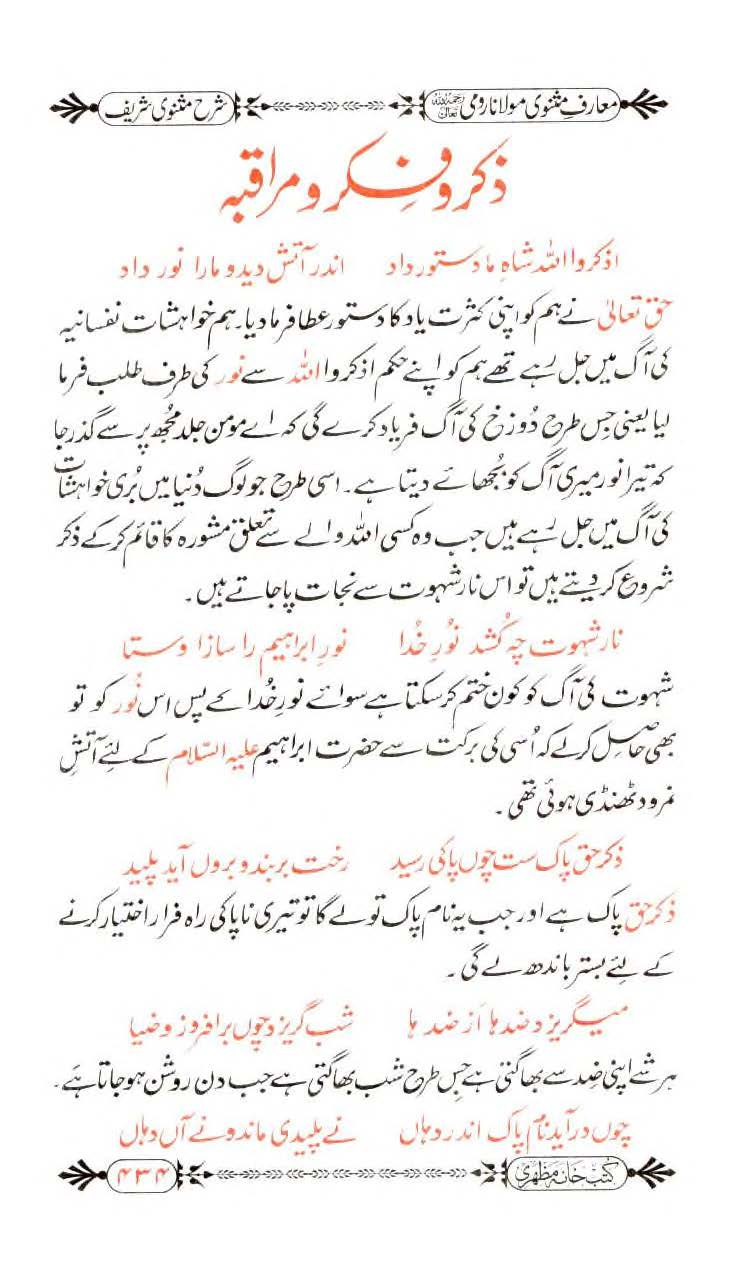 معارفِ مثنوی مولانا رومی رحمۃ اللہ تعالیٰ شرح مثنوی شریف
ذکر و فکر و مراقبہ
اذکروا اللہ شاہِ ما دستور داد اندر آتش دید و ما را نور داد
حق تعالیٰ نے ہم کو اپنی کثرت یاد کا دستور عطا فرما دیا۔ ہم خواہشات نفسانیہ
کی آگ میں جل رہے تھے ہم کو اپنے حکم اذکروا اللہ سے نور کی طرف طلب فرما
لیا یعنی جس طرح دُوزخ کی آگ فریاد کرے گی کہ اے مومن جلد مجُھ پر سے گذر جا
کہ تیرا نور میری آگ کو بُجھائے دیتا ہے۔ اسی طرح جو لوگ دُنیا میں بُری خواہشات
کی آگ میں جل رہے ہیں جب وہ کسی اللہ والے سے تعلق مشورہ کا قائم کرکے ذکر
شروع کر دیتے ہیں تو اس نار شہوت سے نجات پا جاتے ہیں۔
نار شہوت چہ کُشد نُورِ خُدا نورِ ابراہیم را ساز اوستا
شہوت کی آگ کو کون ختم کرسکتا ہے سوائے نورِ خُدا کے پس اس نُور کو تو
بھی حاصل کرلے کہ اُسی کی برکت سے حضرت ابراہیم علیہ السّلام کے لئے آتشِ
نمرود ٹھنڈی ہوئی تھی۔
ذکر حق پاک ست چوں پاکی رسید رخت بر بندو بروں آید پلید
ذکر حق پاک ہے اور جب یہ نام پاک تو لے گا تو تیری ناپاکی راہ فرار اختیار کرنے
کے لئے بستر باندھ لے گی۔
میگریزد ضد ہا اَز ضد ہا شب گریزد چوں بر افروزد ضیا
ہر شے اپنی ضِد سے بھاگتی ہے جس طرح شب بھاگتی ہے جب دن روشن ہوجاتا ہے۔
چوں در آید نام پاک اندر دہاں نے پلیدی ماند و نے آں دہاں
کتب خانہ مظہری ۴۳۴